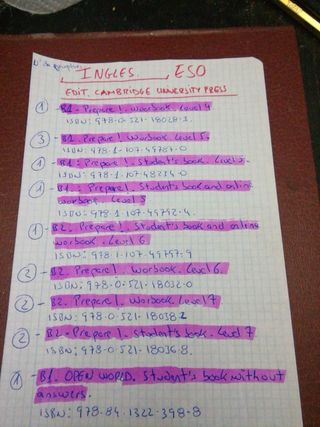 Nº de ejemplares
INGLES. ESO
EDIT. CAMBRIDGE UNIVERSITY PRESS
1 - B1 - Prepare!. Workbook. Level 4
ISBN: 978-0-521-18028-1.
3 - B1. Prepare!. Workbook Level 5.
ISBN: 978-1-107-49787-0
1 - B1: Prepare!. Student's book. Level
ISBN: 978-1-107-48234-0
1 - B1.: Prepare!. Student's book and online
workbook. Level 5
ISBN: 978-1-107-49792-4.
1 - B2. Prepare!. Student's book and online
workbook. Level 6
ISBN: 978-1-107-49797-9
2 - B2. Prepare!. Workbook. Level 6.
ISBN: 978-0-521-18032-0
2 - B2. Prepare!. Workbook. Level 7
ISBN: 978-0-521-18038-2
2 - B2 - Prepare!. Student's book. Level 7
ISBN: 978-0-521-18036-8.
1 - B1. OPEN WORLD. Student's book without
answers.
ISBN: 978-84-1322-398-8